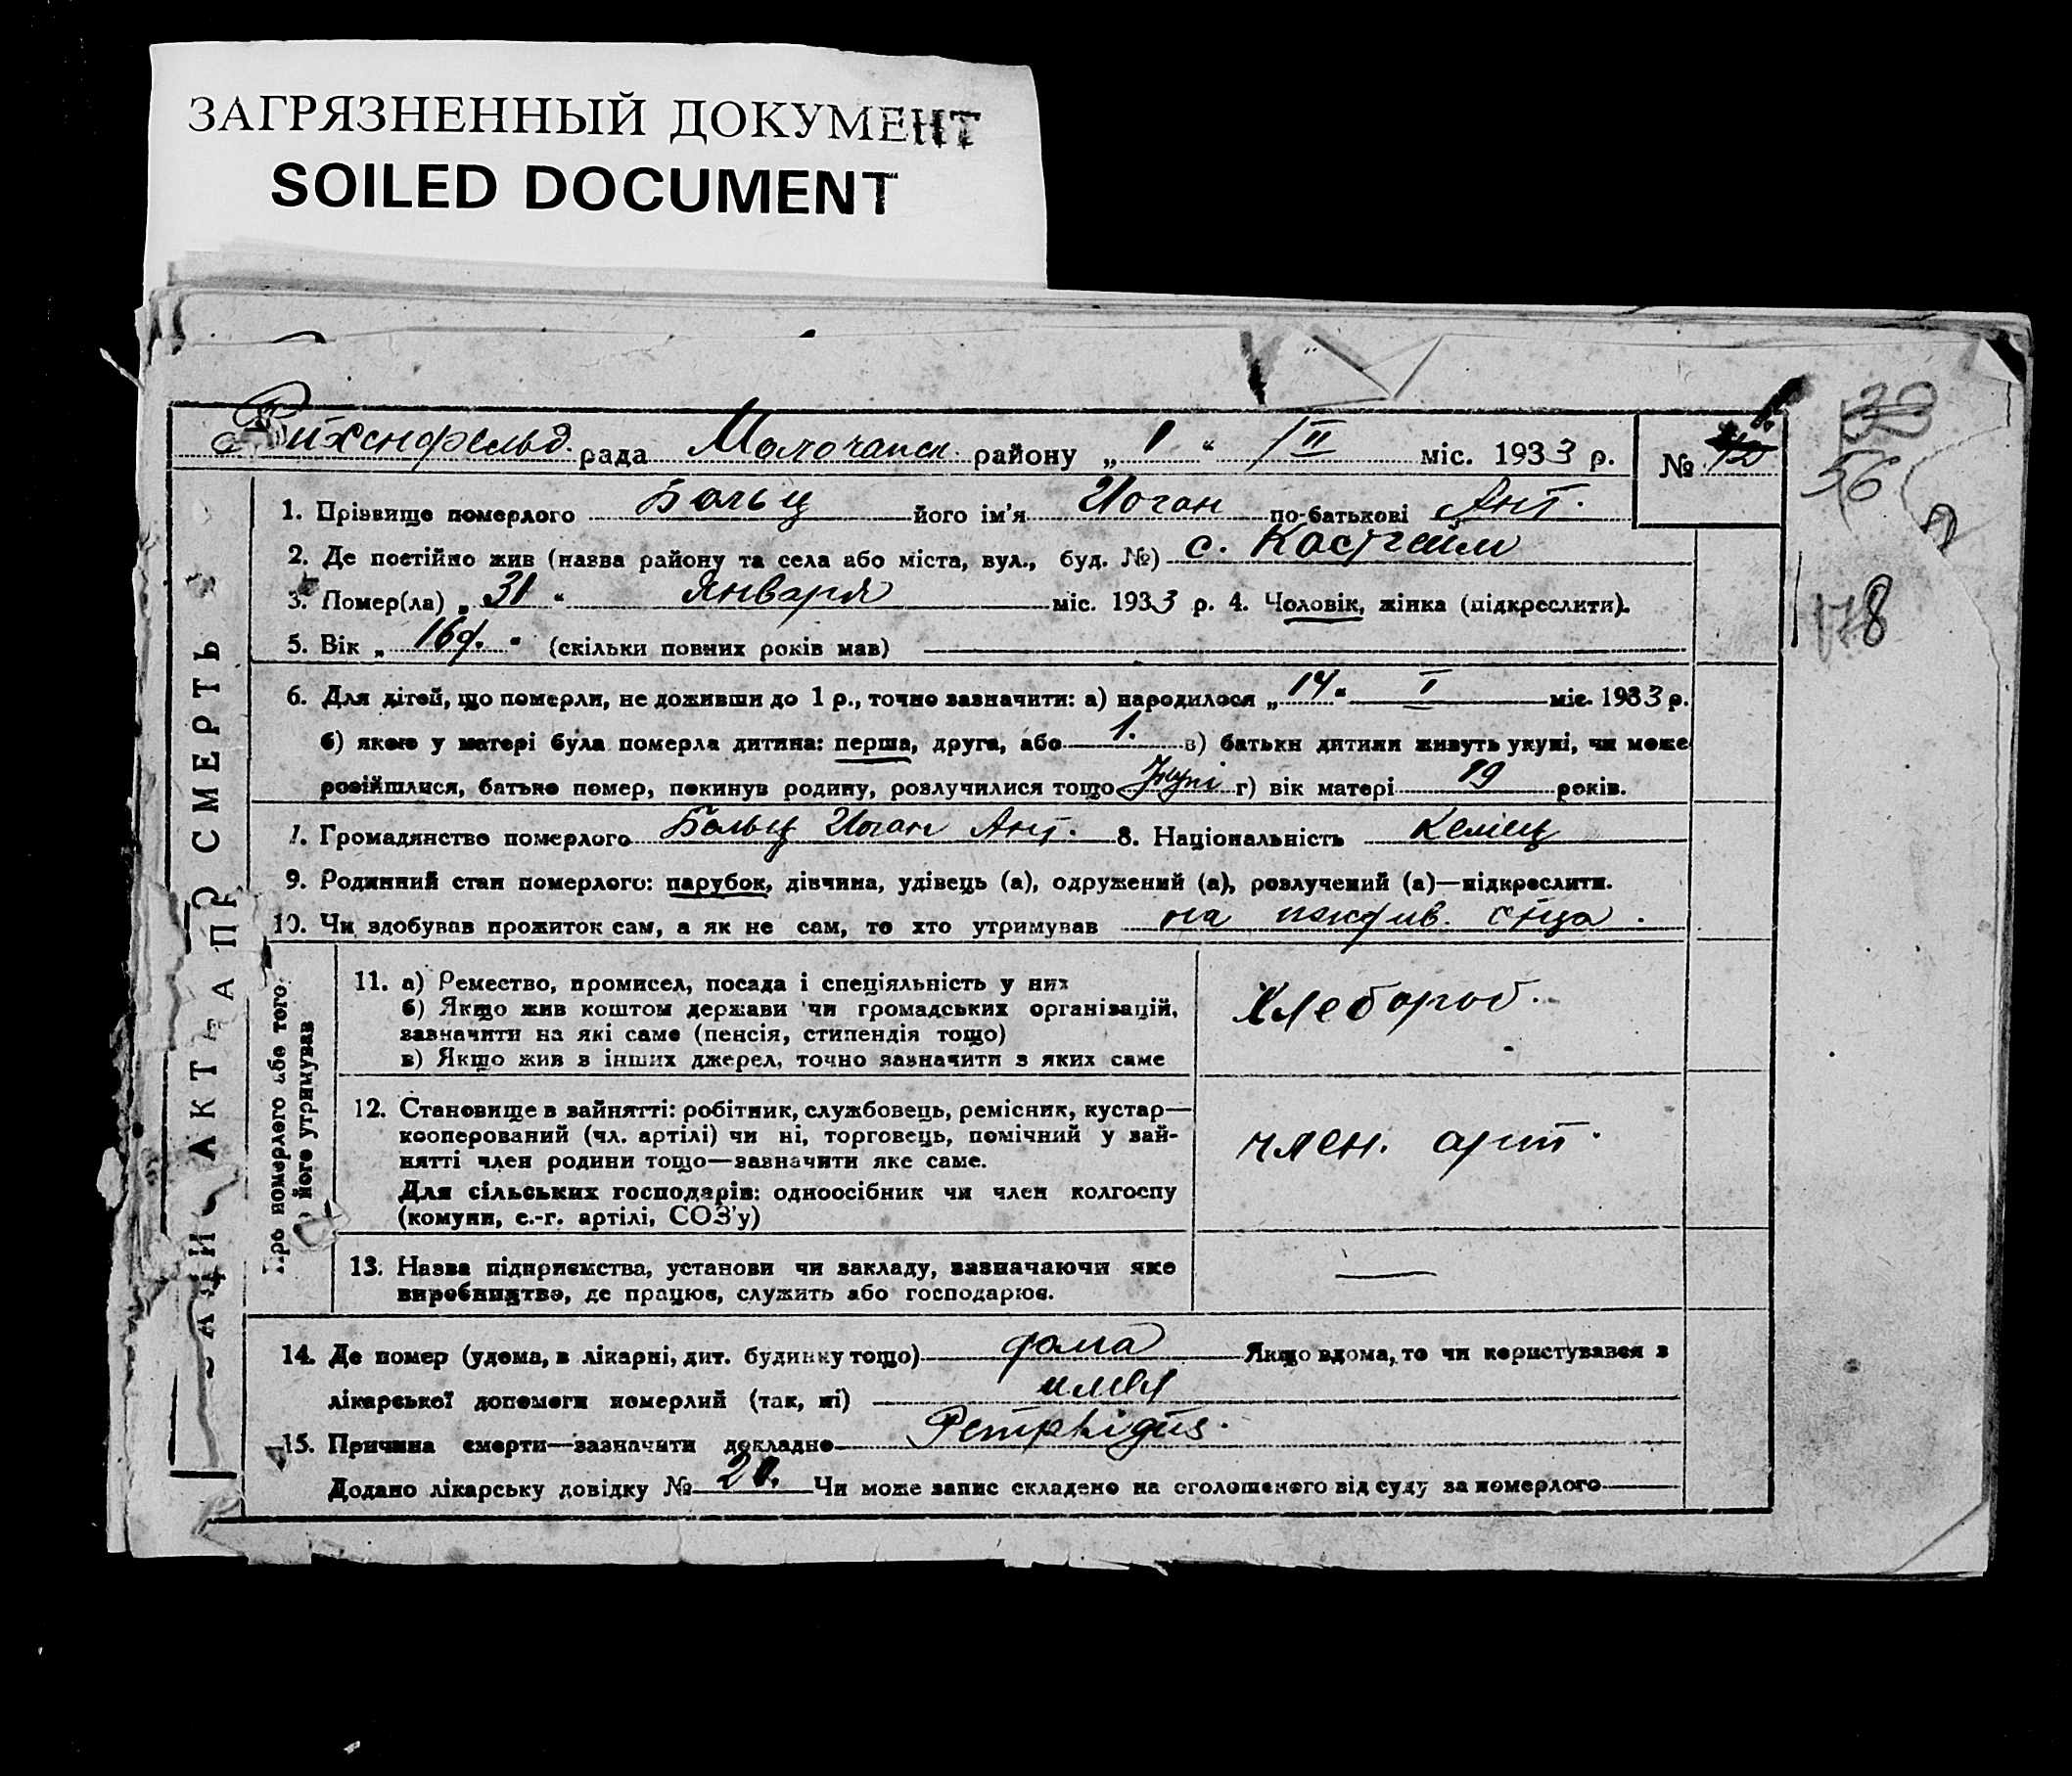 ЗАГРЯЗНЕННЫЙ ДОКУМЕНТ
SOILED DOCUMENT
Рихенфельд. рада Молочанск. району „1“ II міс. 1933 р. №
32
56
1. Прізвище померлого Больц його ім'я Иоган по-батькові Ант.
2. Де постійно жив (назва району та села або міста, вул., буд. №) с. Костгейм
3. Помер(ла) „31“ Января міс. 1933 р. 4. Чоловік, жінка (підкреслити).
178
5. Вік „16д.“ (скільки повних років мав)
6. Для дітей, що померли, не доживши до 1 р., точно зазначити: а) народилося „14“ I міс. 1933 р.
б) якою у матері була померла дитина: перша, друга, або 1. в) батьки дитини живуть укупі, чи може
розійшлися, батько помер, покинув родину, розлучилися тощо г) вік матері 19 років.
7. Громадянство померлого Больц Иоган Ант. 8. Національність Немец
9. Родинний стан померлого: парубок, дівчина, удівець (а), одружений (а), розлучений (а)—підкреслити.
10. Чи здобував прожиток сам, а як не сам, то хто утримував на иждив. отца.
11. а) Ремество, промисел, посада і спеціяльність у них
б) Якщо жив коштом держави чи громадських організацій,
зазначити на які саме (пенсія, стипендія тощо)
в) Якщо жив в інших джерел, точно зазначити з яких саме
Хлебороб.
12. Становище в зайнятті: робітник, службовець, ремісник, кустар—
кооперований (чл. артілі) чи ні, торговець, помічний у зай-
нятті член родини тощо—зазначити яке саме.
Для сільських господарів: одноосібник чи член колгоспу
(комуни, с.-г. артілі, СОЗ'у)
член. арт.
13. Назва підприємства, установи чи закладу, зазначаючи яке
виробництво, де працює, служить або господарює.
—
14. Де помер (удома, в лікарні, дит. будинку тощо) дома Якщо вдома, то чи користувався з
лікарської допомоги померлий (так, ні)
15. Причина смерти—зазначити докладно Pemphigus.
Додано лікарську довідку № Чи може запис складено на оголошеного від суду за померлого
АКТ ПРО СМЕРТЬ
Про померлого або того,
його утримував